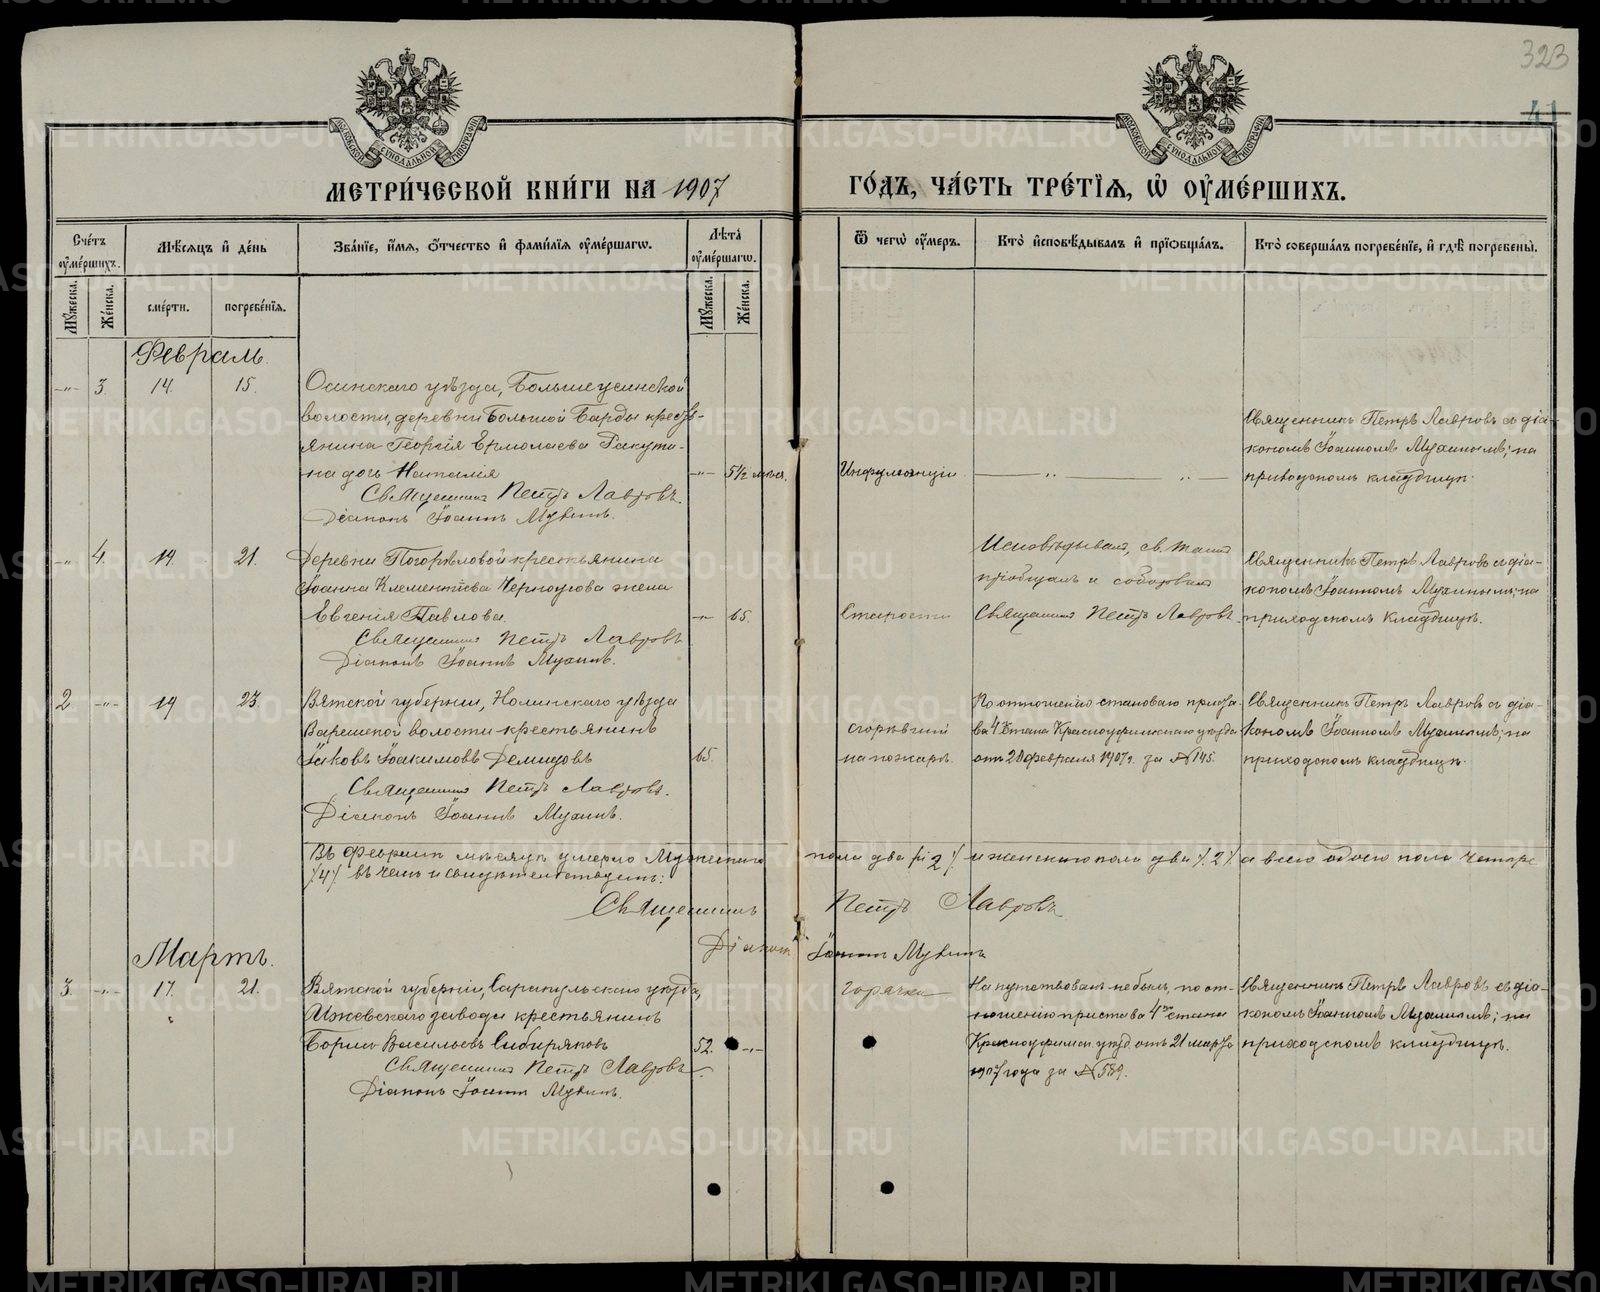 323
41
МОСКОВСКОЙ СѴНОДАЛЬНОЙ ТИПОГРАФІИ
МОСКОВСКОЙ СѴНОДАЛЬНОЙ ТИПОГРАФІИ
МЕТРИ́ЧЕСКОЙ КНИ́ГИ НА 1907
ГО́ДЪ, ЧА́СТЬ ТРЕ́ТЇѦ, Ѡ҆ ОУ҆МЕ́РШИХЪ.
Сче́тъ оу҆ме́ршихъ.
Мѣ́сяцъ и҆ де́нь
Зва́нїе, и҆́мя, ѻ҆́тчество и҆ фами́лїя оу҆ме́ршагѡ.
Лѣ́та оу҆ме́ршагѡ.
Ѿ чегѡ̀ оу҆́меръ.
Кто̀ и҆сповѣ́дывалъ и҆ прїѡбща́лъ.
Кто̀ соверша́лъ погребе́нїе, и҆ гдѣ̀ погребены̀.
Му́жеска.
Же́нска.
сме́рти.
погребе́нїя.
Му́жеска.
Же́нска.
Февраль.
-"- 3 14. 15. Осинскаго уѣзда, Большеусинской
волости, деревни Большой Барды кресть-
янина Георгія Ермолаева Ракути-
на дочь Наталія -"- 5½ мѣся.
Священникъ Петръ Лавровъ.
Діаконъ Іоаннъ Мухинъ.
Инфлюэнціи
— " — " —
Священникъ Петръ Лавровъ съ діа-
кономъ Іоанномъ Мухинымъ; на
приходскомъ кладбищѣ.
-"- 4. 19 21. Деревни Погорѣловой крестьянина
Іоанна Клементіева Черноусова жена
Евгенія Павлова. -"- 65.
Священникъ Петръ Лавровъ
Діаконъ Іоаннъ Мухинъ.
Старости
Исповѣдывалъ, св. таинъ
пріобщалъ и соборовалъ
Священникъ Петръ Лавровъ
Священникъ Петръ Лавровъ съ діа-
кономъ Іоанномъ Мухинымъ; на
приходскомъ кладбищѣ.
2 -"- 19 23. Вятской губерніи, Нолинскаго уѣзда
волости крестьянинъ
Іаковъ Іоакимовъ Демидовъ 65.
Священникъ Петръ Лавровъ.
Діаконъ Іоаннъ Мухинъ.
сгорѣвшій
на пожарѣ.
По отношенію становаго приста-
ва 4 стана Красноуфимскаго уѣзда
отъ 20 февраля 1907 г. за № 145.
Священникъ Петръ Лавровъ съ діа-
кономъ Іоанномъ Мухинымъ; на
приходскомъ кладбищѣ.
Въ февралѣ мѣсяцѣ умерло мужескаго пола два /:2:/ и женскаго пола два /:2:/ а всего обоего пола четыре
/:4:/ въ чемъ и свидѣтельствуемъ:
Священникъ Петръ Лавровъ
Діаконъ Іоаннъ Мухинъ
Мартъ.
3. -"- 17. 21. Вятской губерніи, Сарапульскаго уѣзда,
Ижевскаго завода крестьянинъ
Борисъ Васильевъ Сибиряковъ 52. -"-
Священникъ Петръ Лавровъ
Діаконъ Іоаннъ Мухинъ.
горячка
Напутствованъ не былъ, по от-
ношенію пристава 4го стана
Красноуфимск. уѣзд. отъ 21 марта
1907 года за № 589.
Священникъ Петръ Лавровъ съ діа-
кономъ Іоанномъ Мухинымъ; на
приходскомъ кладбищѣ.
METRIKI.GASO-URAL.RU